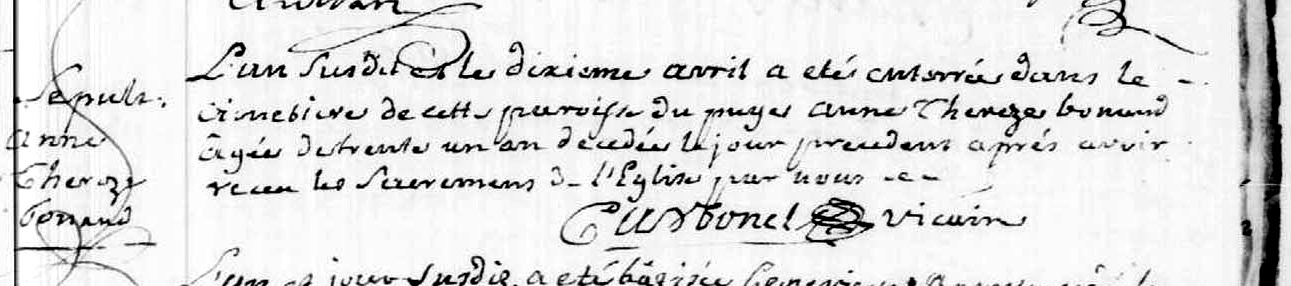 L'an susdit et le dixieme avril a eté enterrée dans le
Sepult.
cimetiere de cette paroisse du puget anne Thereze bonaud
anne
âgée de trente un an decedée le jour precedent aprés avoir
Thereze
receu les sacremens de l'Eglise par nous
bonaud
Carbonel vicaire
L'an et jour susdit a eté bâtisée